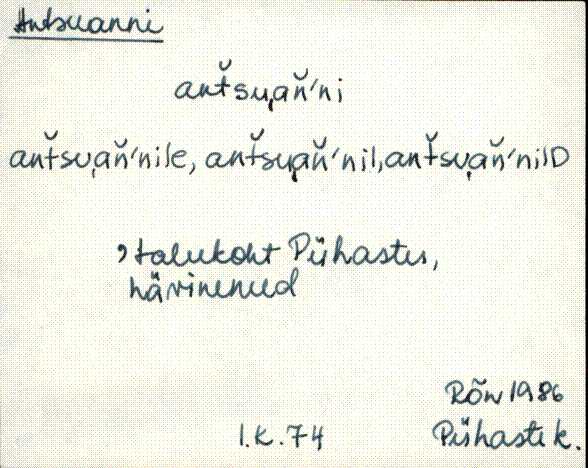 Antsuanni
ant̆su̯ań'ni
ant̆su̯ań'nile, ant̆su̯ań'nil, ant̆su̯ań'nilD
, talukoht Pühastes,
hävinenud
Rõu 1986
I.K. 74 Pühaste k.